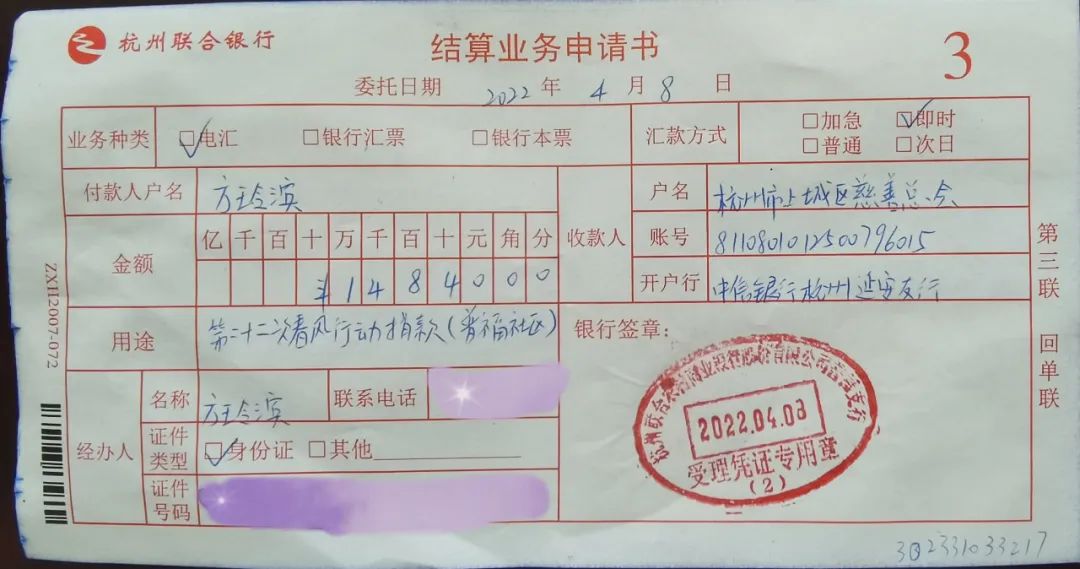 杭州联合银行
结算业务申请书
3
委托日期 2022 年 4 月 8 日
业务种类 □电汇 □银行汇票 □银行本票 汇款方式 □加急 □即时
□普通 □次日
付款人户名 方玲滨 收款人 户名 杭州市上城区慈善总会
金额 亿 千 百 十 万 千 百 十 元 角 分
¥ 1 4 8 4 0 0 0
账号 8110801012500796015
开户行 中信银行杭州延安支行
用途 第二十二次春风行动捐款(普福社区)
银行签章:
经办人 名称 方玲滨 联系电话
证件类型 □身份证 □其他
证件号码
2022.04.08
受理凭证专用章
(2)
第三联 回单联
ZXH2007-072
302331033217